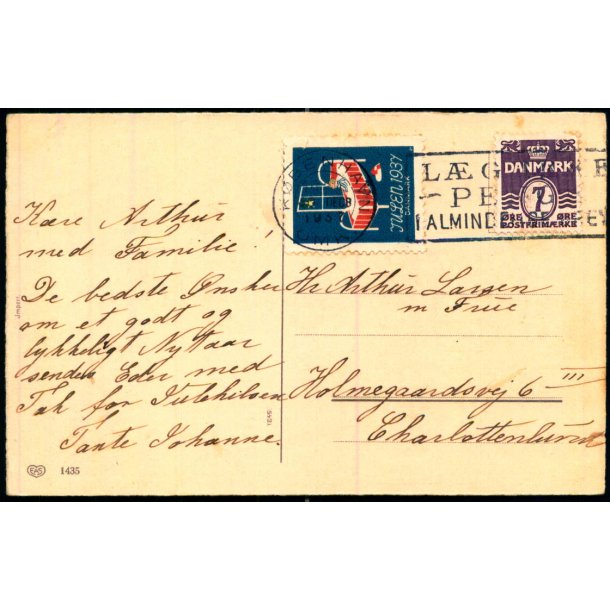 Kære Arthur
med Familie!
De bedste Ønsker
om et godt og
lykkeligt Nytaar
sendes Eder med
Tak for Julehilsen
Tante Johanne.
EAS 1435
Import.
KØBENHAVN
OMK
JULEN 1937
DANMARK
LÆG
PE
ALMIND
DANMARK
7
ØRE ØRE
POSTFRIMÆRKE
Hr Arthur Larsen
m Frue
Holmegaardsvej 6 III
Charlottenlund